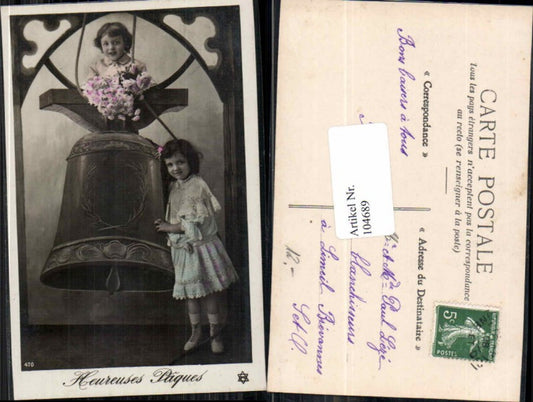 470
Heureuses Pâques
CARTE POSTALE
Tous les pays étrangers n'acceptent pas la correspondance
au recto (se renseigner à la poste)
« Correspondance »
« Adresse du Destinataire »
Bons baisers à tous
Artikel Nr.
104689
Paul Lézé
blanchisseurs
à Limeil Brévannes
S et O.
12.-
5c
POSTES